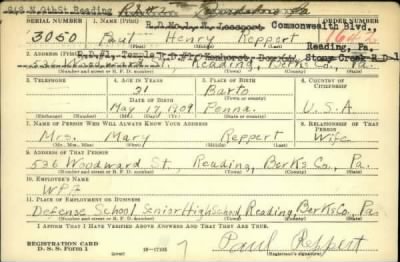 S. 9th St. Reading
R.D. No. 1, N. Leesport, Commonwealth Blvd.,
SERIAL NUMBER 1. NAME (Print) ORDER NUMBER
3050 Paul Henry Reppert 1642
Reading, Pa.
R.D. #1, Temple Stony Creek R D-1
2. ADDRESS (Print)
536 Woodward St., Reading, Berks Co., Pa.
(First) (Middle) (Last)
(Number and street or R. F. D. number) (Town) (County) (State)
3. TELEPHONE 4. AGE IN YEARS 5. PLACE OF BIRTH 6. COUNTRY OF CITIZENSHIP
31 Barto
DATE OF BIRTH (Town or county)
May 17, 1909 Penna. U.S.A
(Exchange) (No.) (Mo.) (Day) (Yr.) (State or country)
7. NAME OF PERSON WHO WILL ALWAYS KNOW YOUR ADDRESS 8. RELATIONSHIP OF THAT PERSON
Mrs. Mary Reppert Wife
(Mr., Mrs., Miss) (First) (Middle) (Last)
9. ADDRESS OF THAT PERSON
536 Woodward St., Reading, Berks Co., Pa.
(Number and street or R. F. D. number) (Town) (County) (State)
10. EMPLOYER'S NAME
WPA
11. PLACE OF EMPLOYMENT OR BUSINESS
Defense School, Senior High School, Reading, Berks Co, Pa
(Number and street or R. F. D. number) (Town) (County) (State)
I AFFIRM THAT I HAVE VERIFIED ABOVE ANSWERS AND THAT THEY ARE TRUE.
REGISTRATION CARD
D. S. S. Form 1 (over) 16-17105
Paul Reppert
(Registrant's signature)